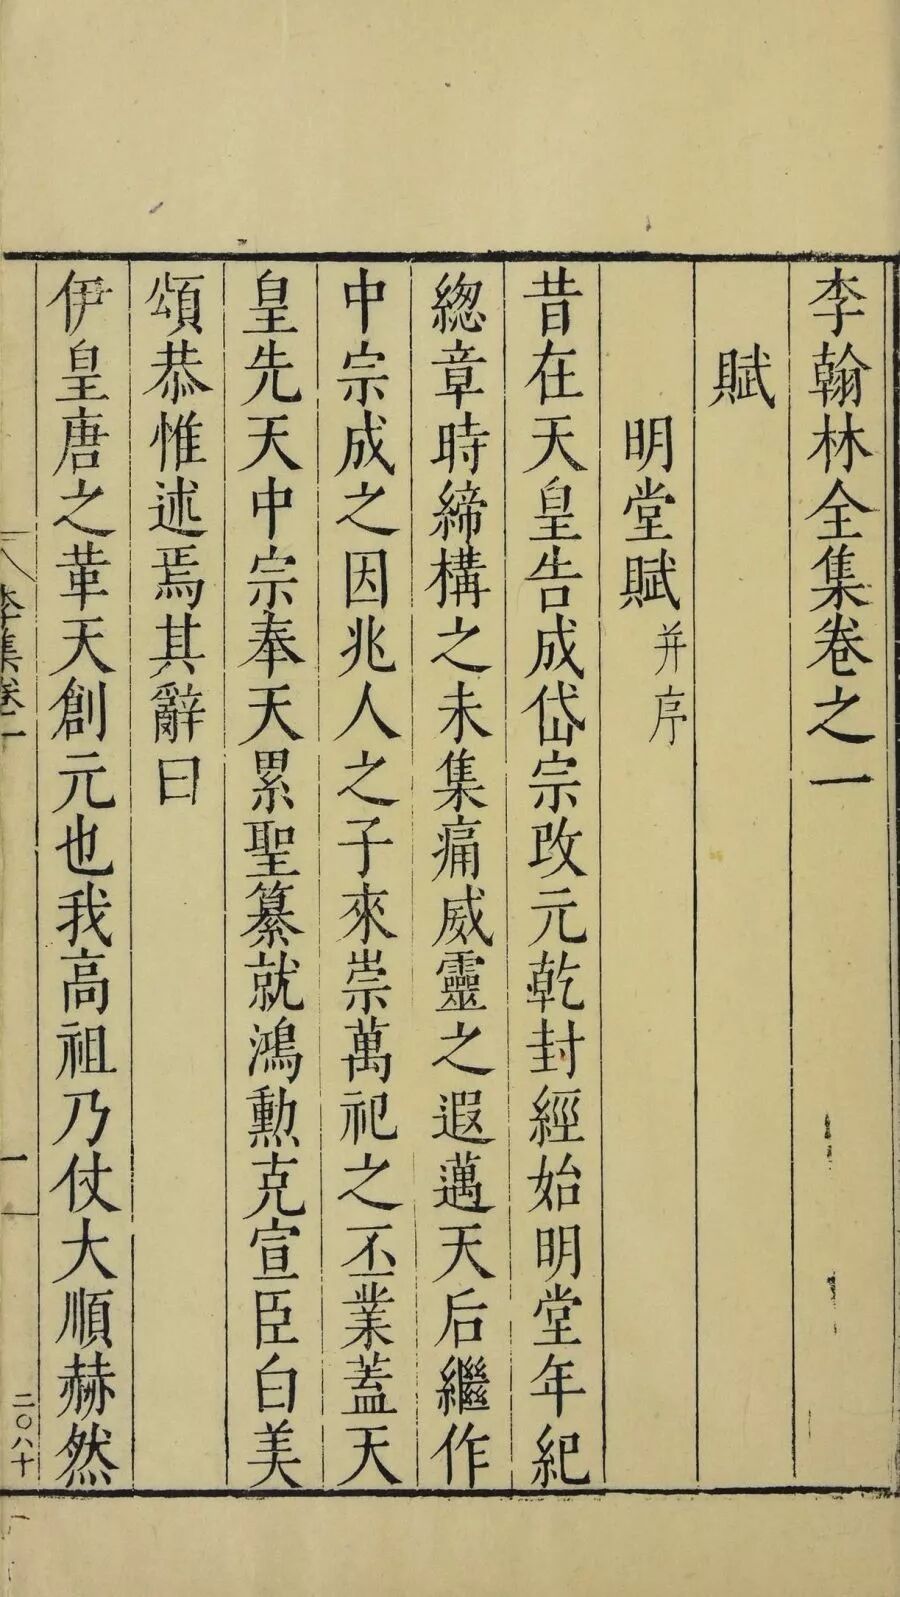 李翰林全集卷之一
賦
明堂賦并序
昔在天皇告成岱宗改元乾封經始明堂年紀
緫章時締構之未集痛威靈之遐邁天后繼作
中宗成之因兆人之子來崇萬祀之丕業蓋天
皇先天中宗奉天累聖纂就鴻勲克宣臣白美
頌恭惟述焉其辭曰
伊皇唐之革天創元也我高祖乃仗大順赫然
李集卷一
一
二〇八十